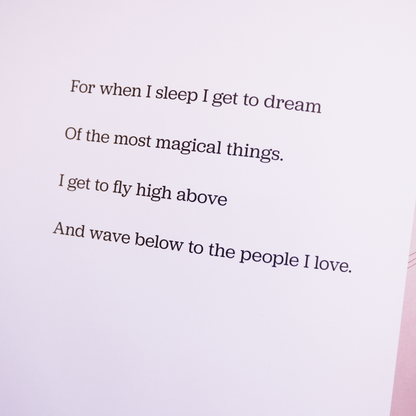 For when I sleep I get to dream
Of the most magical things.
I get to fly high above
And wave below to the people I love.